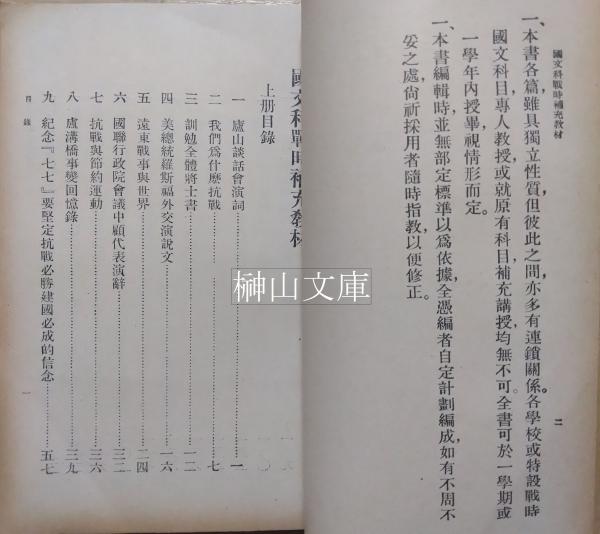 國文科戰時補充教材
二
一、本書各篇，雖具獨立性質，但彼此之間，亦多有連鎖關係。各學校或特設戰時
國文科目，專人教授，或就原有科目，補充講授，均無不可。全書可於一學期或
一學年內授畢，視情形而定。
一、本書編輯時，並無部定標準以爲依據，全憑編者自定計劃編成，如有不周不
妥之處，尙祈採用者隨時指教，以便修正。
國文科戰時補充教材
上册目錄
一 廬山談話會演詞…………一
二 我們爲什麽抗戰…………七
三 訓勉全體將士書…………一二
四 美總統羅斯福外交演說文…………一六
五 遠東戰事與世界…………二四
六 國聯行政院會議中顧代表演辭…………三二
七 抗戰與節約運動…………三六
八 盧溝橋事變回憶錄…………三九
九 紀念『七七』要堅定抗戰必勝建國必成的信念…………五七
目錄
一
榊山文庫